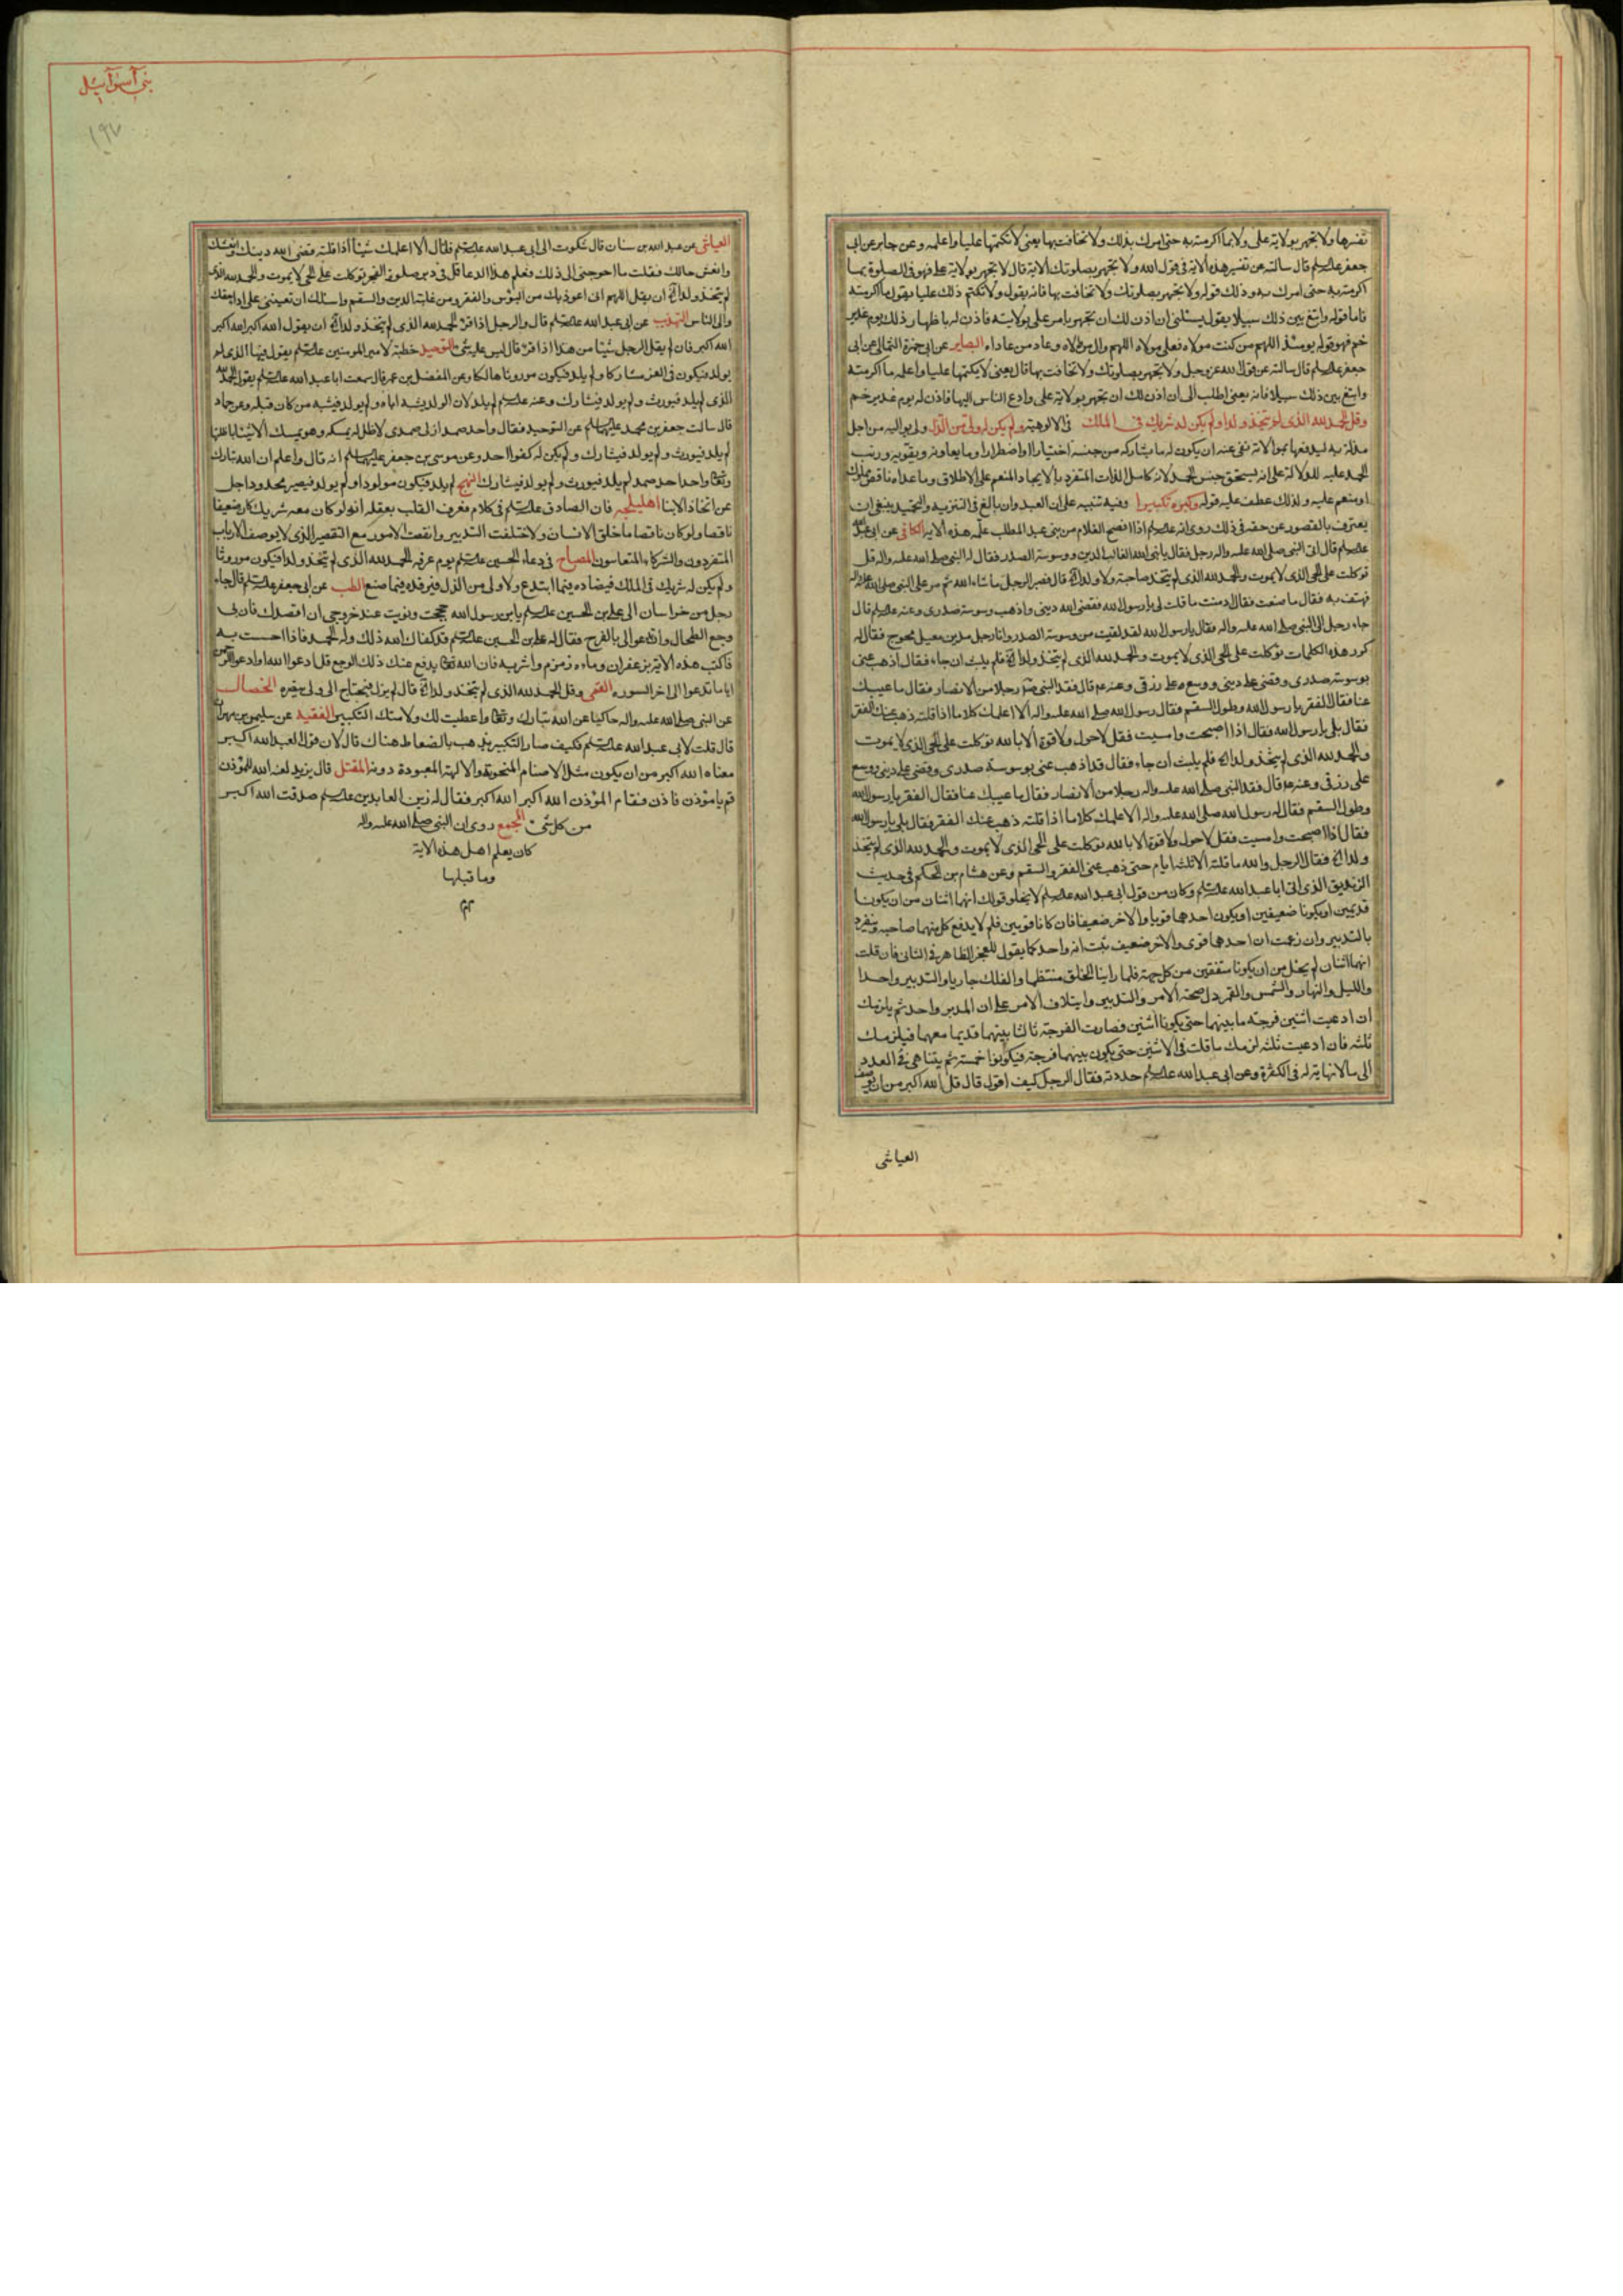 تفسيرها ولا تجهر بولاية على ولا بما اكرمته به حتى امرك بذلك ولا تخافت بها يعنى لا تكتمها عليا واعلمه وعن جابر عن ابى
جعفر علیه السلم قال سالته عن تفسير هذه الاية فى قول الله ولا تجهر بصلوتك الاية قال لا تجهر بولاية على فهو فى الصلوة بما
اكرمته به حتى امرك به وذلك قوله ولا تجهر بصلوتك ولا تخافت بها فانه يقول ولا تكتم ذلك عليا يقول ما اكرمته
فاما قوله وابتغ بين ذلك سبيلا يقول يسئلنى ان اذن لك ان تجهر بامر على بولايته فاذن له باظهار ذلك يوم غدير
خم فهو قوله يومئذ اللهم من كنت مولاه فعلى مولاه اللهم وال من والاه وعاد من عاداه البصاير عن ابى حمزة الثمالى عن ابى
جعفر علیه السلم قال سالته عن قول الله عز وجل ولا تجهر بصلوتك ولا تخافت بها قال يعنى لا تكتمها عليا واعلمه ما اكرمته
وابتغ بين ذلك سبيلا فانه يعنى اطلب الى ان اذن لك ان تجهر بولاية على وادع الناس اليها فاذن له يوم غدير خم
وقل الحمد لله الذى لم يتخذ ولدا ولم يكن له شريك فى الملك فى الالوهية ولم يكن له ولى من الذل ولى يواليه من اجل
مذلة به ليدفعها بموالاته نفى عنه ان يكون له ما يشاركه من جنسه اختيارا او اضطرارا وما يعاونه ويقويه ورتب
الحمد عليه للدلالة على انه يستحق جنس الحمد لانه كامل الذات المتفرد بالايجاد المنعم على الاطلاق وما عداه ناقص مملوك
او منعم عليه ولذلك عطف عليه قوله وكبره تكبيرا وفيه تنبيه على ان العبد وان بالغ فى التنزيه والتمجيد ينبغى ان
يعترف بالقصور عن حقه فى ذلك روى انه علیه السلم اذا افصح الغلام من بنى عبد المطلب علمه هذه الاية الكافى عن ابى عبد الله
علیه السلم قال اتى النبى صلى الله عليه واله رجل فقال يا نبى الله الغالب الدين ووسوسة الصدر فقال له النبى صلى الله عليه واله قل
توكلت على الحى الذى لا يموت والحمد لله الذى لم يتخذ صاحبة ولا ولدا قال فصبر الرجل ما شاء الله ثم مر على النبى صلى الله عليه واله
فهتف به فقال ما صنعت فقال ادمنت ما قلت لى يا رسول الله فقضى الله دينى واذهب وسوسة صدرى وعنه علیه السلم قال
جاء رجل الى النبى صلى الله عليه واله فقال يا رسول الله لقد لقيت من وسوسة الصدر وانا رجل مدين معيل محوج فقال له
كرر هذه الكلمات توكلت على الحى الذى لا يموت والحمد لله الذى لم يتخذ ولدا فلم يلبث ان جاءه فقال اذهب عنى
بوسوسة صدرى وقضى على دينى ووسع على رزقى وعنه قال فقد النبى رجلا من الانصار فقال ما غيبك
عنا فقال الفقر يا رسول الله وطول السقم فقال رسول الله صلى الله عليه واله الا اعلمك كلاما اذا قلته ذهب عنك الفقر
فقال بلى يا رسول الله فقال اذا اصبحت وامسيت فقل لا حول ولا قوة الا بالله توكلت على الحى الذى لا يموت
والحمد لله الذى لم يتخذ ولدا فلم يلبث ان جاء فقال قد اذهب عنى بوسوسة صدرى وقضى على دينى ووسع
على رزقى وعنه قال فقد النبى صلى الله عليه واله رجلا من الانصار فقال ما غيبك عنا فقال الفقر يا رسول الله
وطول السقم فقال له رسول الله صلى الله عليه واله الا اعلمك كلاما اذا قلته ذهب عنك الفقر فقال بلى يا رسول الله
فقال اذا اصبحت وامسيت فقل لا حول ولا قوة الا بالله توكلت على الحى الذى لا يموت والحمد لله الذى لم يتخذ
ولدا فقال الرجل والله ما قلته الا ثلثة ايام حتى ذهب عنى الفقر والسقم وعن هشام بن الحكم فى حديث
الزنديق الذى اتى ابا عبد الله علیه السلم وكان من قول ابى عبد الله علیه السلم لا يخلو قولك انهما اثنان من ان يكونا
قديمين او يكونا ضعيفين او يكون احدهما قويا والاخر ضعيفا فان كانا قويين فلم لا يدفع كل منهما صاحبه ويتفرد
بالتدبير وان زعمت ان احدهما قوى والاخر ضعيف ثبت انه واحد كما يقول للعجز الظاهر فى الثانى فان قلت
انهما اثنان لم يخل من ان يكونا متفقين من كل جهة فلما راينا الخلق منتظما والفلك جاريا والتدبير واحدا
والليل والنهار والشمس والقمر دل صحة الامر والتدبير وايتلاف الامر على ان المدبر واحد ثم يلزمك
ان ادعيت اثنين فرجة ما بينهما حتى يكونا اثنين فصارت الفرجة ثالثا بينهما قديما معهما فيلزمك
ثلثة فان ادعيت ثلثة لزمك ما قلت فى الاثنين حتى يكون بينهما فرجة فيكونوا خمسة ثم يتناهى فى العدد
الى ما لا نهاية له فى الكثرة وعن ابى عبد الله علیه السلم حددته فقال الرجل كيف اقول قال قل الله اكبر من ان يوصف
العياشى
بنى اسرائيل
١٩٧
العياشى عن عبد الله بن سنان قال شكوت الى ابى عبد الله علیه السلم فقال الا اعلمك شيئا اذا قلته قضى الله دينك وانعشك
وانعش حالك فقلت ما احوجنى الى ذلك فعلم هذا الدعا قل فى دبر صلوة الفجر توكلت على الحى لا يموت والحمد لله الذى
لم يتخذ ولدا ان يقل اللهم انى اعوذ بك من البؤس والفقر ومن غلبة الدين والسقم واسئلك ان تعيننى على اداء حقك
والى الناس التهذيب عن ابى عبد الله علیه السلم قال والرجل اذا قرا الحمد لله الذى لم يتخذ ولدا ان يقول الله اكبر الله اكبر
الله اكبر فان لم يقل الرجل شيئا من هذا اذا قرا قال ليس عليه شئ التوحيد خطبة لامير المومنين علیه السلم يقول فيها الذى لم
يولد فيكون فى العز مشاركا ولم يلد فيكون موروثا هالكا وعن المفضل بن عمر قال سمعت ابا عبد الله علیه السلم يقول الحمد لله
الذى لم يلد فيورث ولم يولد فيشارك وعنه علیه السلم لم يلد لان الولد يشبه اباه ولم يولد فيشبه من كان قبله وعن حماد
قال سالت جعفر بن محمد عليهما السلم عن التوحيد فقال واحد صمد ازلى صمدى لا ظل له يمسكه وهو يمسك الاشياء باظلتها
لم يلد فيورث ولم يولد فيشارك ولم يكن له كفوا احد وعن موسى بن جعفر عليهما السلم انه قال واعلم ان الله تبارك
وتعالى واحد احد صمد لم يلد فيورث ولم يولد فيشارك النهج لم يلد فيكون مولودا ولم يولد فيصير محدودا جل
عن اتخاذ الابنا اهليلجه قال الصادق علیه السلم فى كلام فعرف القلب بعقله انه لو كان معه شريك كان ضعيفا
ناقصا ولو كان ناقصا ما خلق الانسان ولاختلفت التدبير وانتقضت الامور مع التقصير الذى لا يوصف الارباب
المتفردون والشركاء المتعاسون المصباح فى دعاء الحسين علیه السلم يوم عرفه الحمد لله الذى لم يتخذ ولدا فيكون موروثا
ولم يكن له شريك فى الملك فيضاده فيما ابتدع ولا ولى من الذل فيرفده فيما صنع الطب عن ابى جعفر علیه السلم قال جاء
رجل من خراسان الى على بن الحسين علیه السلم يا بن رسول الله حججت ونويت عند خروجى ان اقصدك فان بى
وجع الطحال وان تدعو الى بالفرج فقال له على بن الحسين علیه السلم قد كفاك الله ذلك وله الحمد فاذا احسست به
فاكتب هذه الاية بزعفران وماء زمزم واشربه فان الله تعالى يدفع عنك ذلك الوجع قل ادعوا الله او ادعوا الرحمن
اياما تدعوا الى اخر السوره القمى وقل الحمد لله الذى لم يتخذ ولدا قال لم يزل فيحتاج الى ولى ينصره الخصال
عن النبى صلى الله عليه واله حاكيا عن الله تبارك وتعالى واعطيت لك ولامتك التكبير الفقيه عن سليمن بن مهران
قال قلت لابى عبد الله علیه السلم فكيف صار التكبير يذهب بالضغاط هناك قال لان قول العبد الله اكبر
معناه الله اكبر من ان يكون مثل الاصنام المنحوتة والالهة المعبودة دونه المقتل قال يزيد لعنه الله للمؤذن
قم يا مؤذن فاذن فقام المؤذن الله اكبر الله اكبر فقال له زين العابدين علیه السلم صدقت الله اكبر
من كل شئ المجمع روى ان النبى صلى الله عليه واله
كان يعلم اهل هذه الاية
وما قبلها